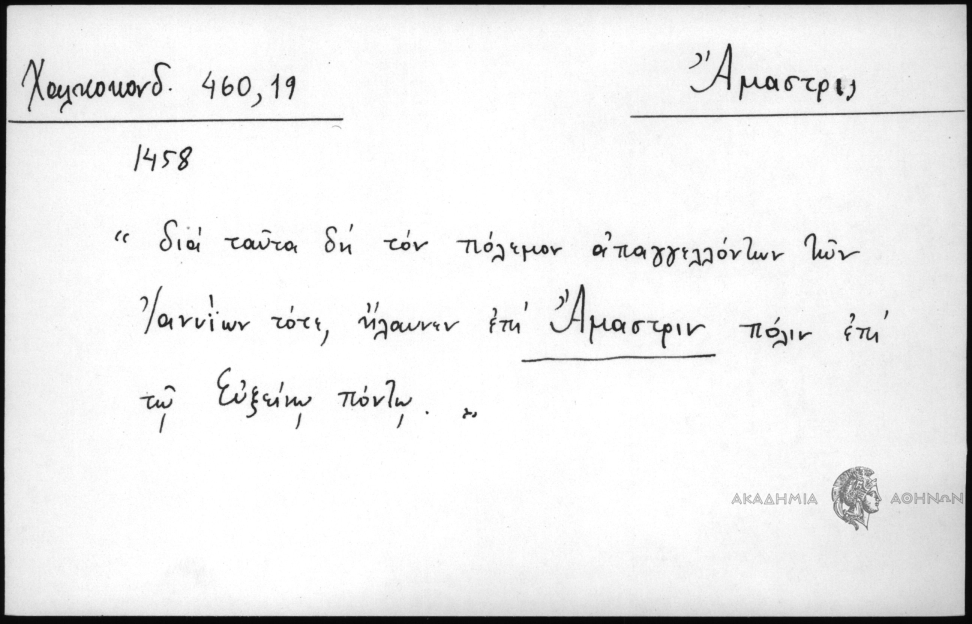 Χαλκοκονδ. 460,19
Ἄμαστρις
1458
“ διά ταῦτα δή τόν πόλεμον ἀπαγγελλόντων τῶν
Ἰαννΐων τότε, ἤλαυνεν ἐπί Ἄμαστριν πόλιν ἐπί
τῷ Εὐξείνῳ πόντῳ. ”
ΑΚΑΔΗΜΙΑ ΑΘΗΝΩΝ